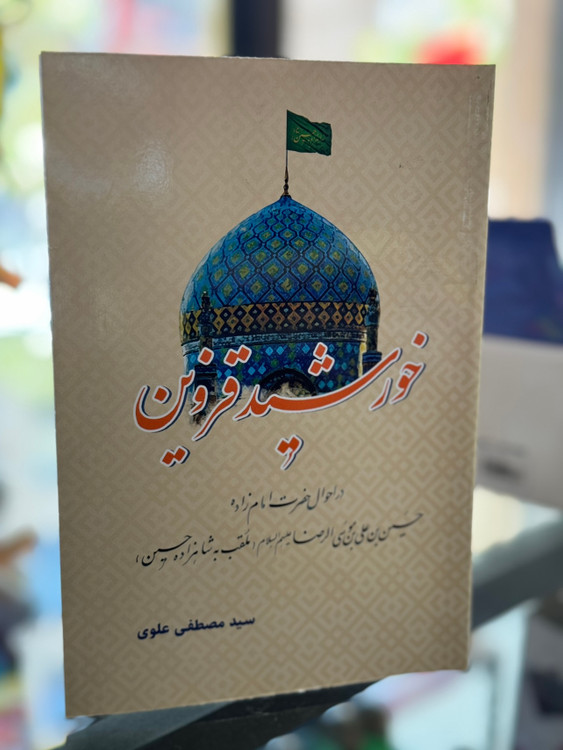 خورشید قزوین
در احوال حضرت امام زاده
حسین بن علی بن موسی الرضا علیهم السلام (ملقب به شاهزاده حسین)
سید مصطفی علوی